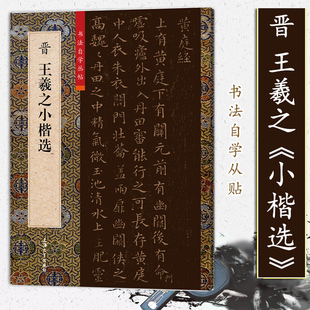 书法自学丛帖
晋 王羲之小楷选
黄庭经
上有黄庭下有關元前有幽關後有命
嘘吸廬外出入丹田審能行之可長存黄庭
中人衣朱衣關門壯蘥蓋兩扉幽關侠之
高魏魏丹田之中精氣微玉池清水上生肥靈
晋 王羲之《小楷选》
书法自学丛贴